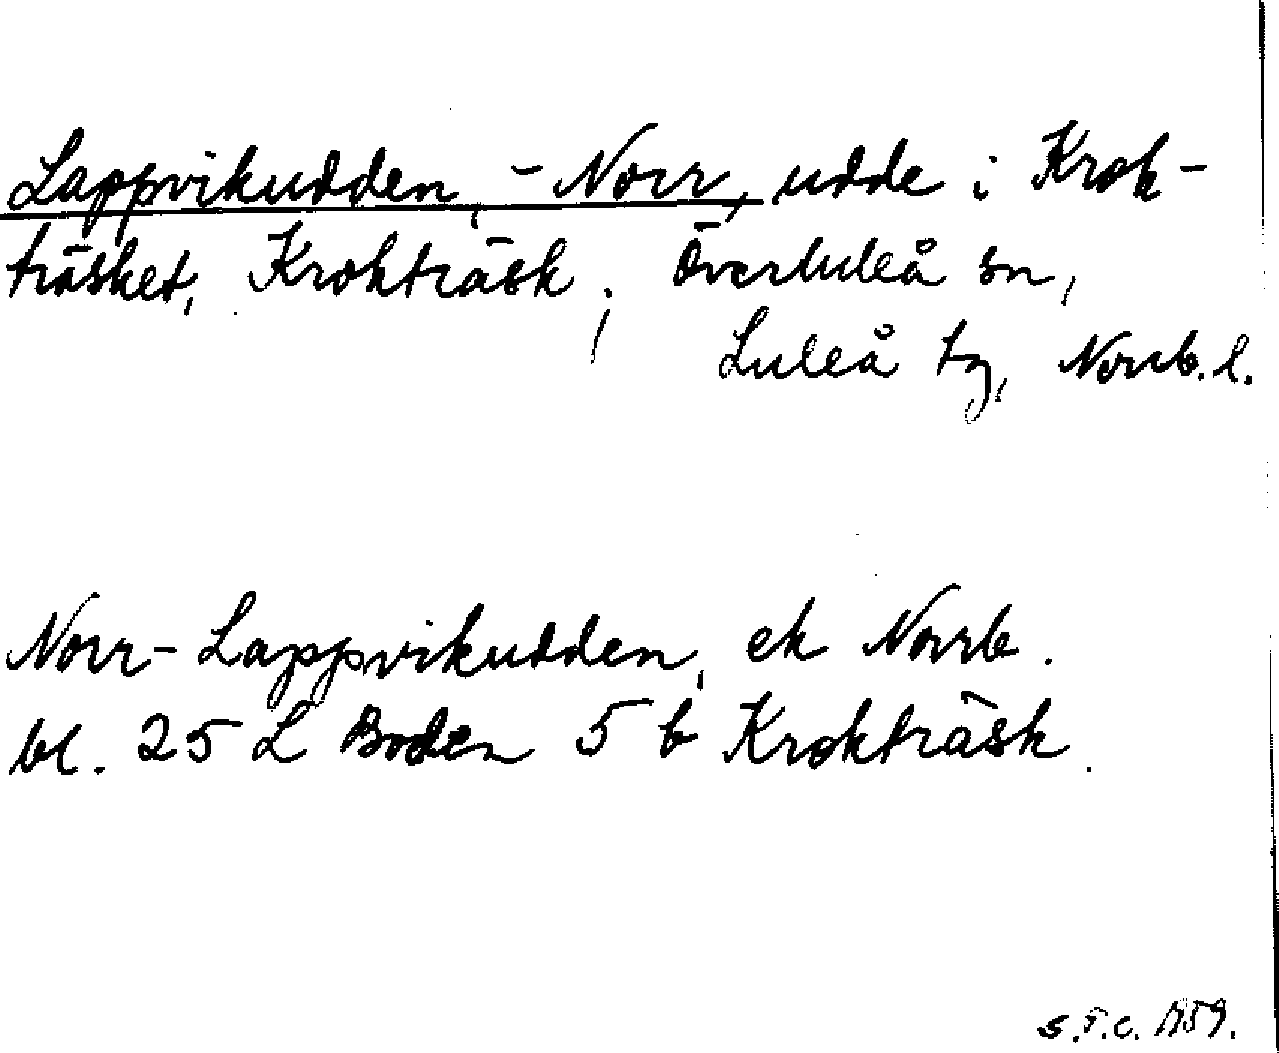 Lappvikudden, - Norr, udde i Krok-
träsket, Krokträsk, Överluleå sn,
Luleå tg, Norrb. l.
Norr-Lappvikudden, ek Norrb.
bl. 25 L Boden 5 b Krokträsk.
S.T.C. 1959.